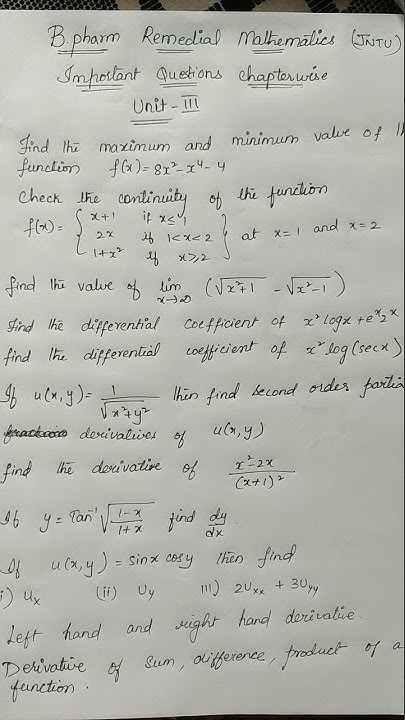 B.pharm Remedial Mathematics (JNTU)
Important Questions chapterwise
Unit - III
Find the maximum and minimum value of
function f(x) = 8x² - x⁴ - 4
Check the continuity of the function
f(x) = { x+1 if x ≤ 1
2x if 1 < x < 2
1+x² if x ≥ 2 } at x = 1 and x = 2
find the value of lim x→∞ (√(x²+1) - √(x²-1))
Find the differential coefficient of x² log x + eˣ 2ˣ
find the differential coefficient of x² log (sec x)
If u(x, y) = 1/√(x²+y²) then find second order partia
derivatives of u(x, y)
find the derivative of (x²-2x)/(x+1)²
If y = Tan⁻¹ √((1-x)/(1+x)) find dy/dx.
If u(x, y) = sinx cosy then find
i) Ux (ii) Uy III) 2Uxx + 3Uyy
Left hand and right hand derivative.
Derivative of sum, difference, product of a
function.